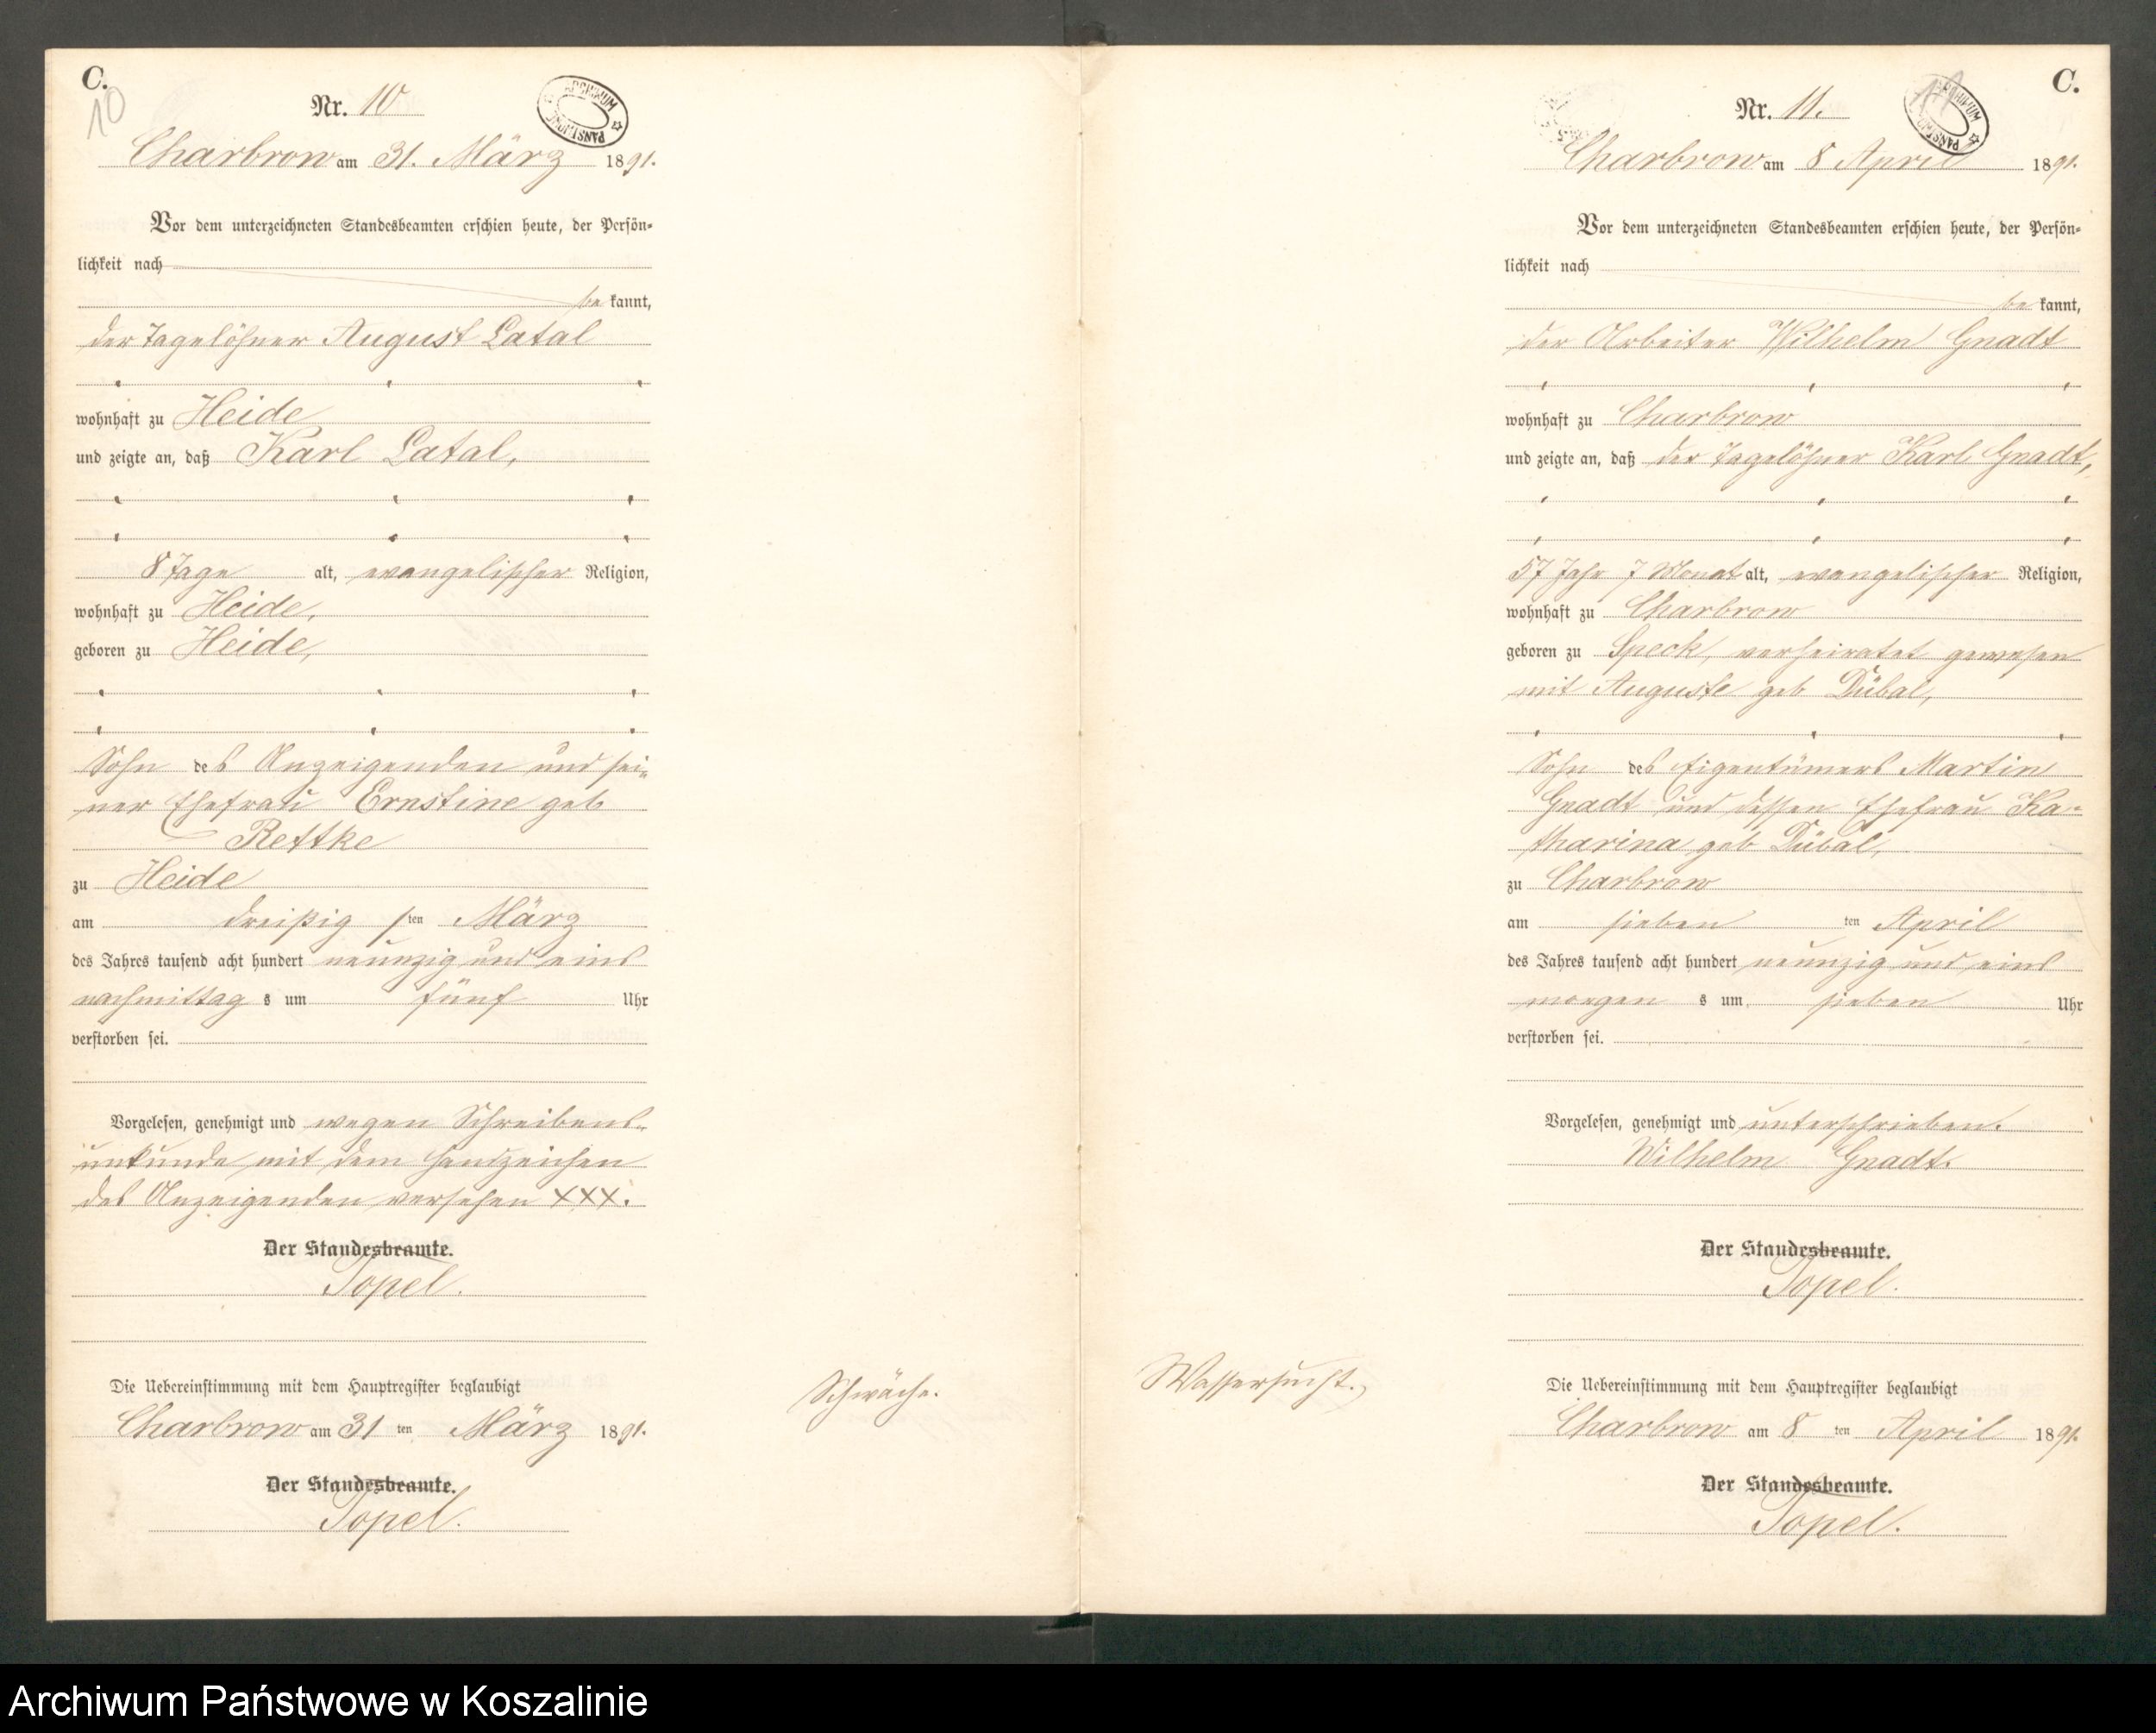 C.
10
Nr. 10
ARCHIWUM PAŃSTWOWE
Charbrow am 31. März 1891.
Vor dem unterzeichneten Standesbeamten erschien heute, der Persön-
lichkeit nach
be kannt,
der Tagelöhner August Latal
wohnhaft zu Heide
und zeigte an, daß Karl Latal,
8 Tage alt, evangelischer Religion,
wohnhaft zu Heide,
geboren zu Heide,
Sohn des Anzeigenden und sei-
ner Ehefrau Ernstine geb
Rettke
zu Heide
am dreißig sten März
des Jahres tausend acht hundert neunzig und eins
nachmittag s um fünf Uhr
verstorben sei.
Vorgelesen, genehmigt und wegen Schreibens-
unkunde mit dem Handzeichen
des Anzeigenden versehen XXX.
Der Standesbeamte.
Topel.
Die Uebereinstimmung mit dem Hauptregister beglaubigt
Charbrow am 31 ten März 1891.
Der Standesbeamte.
Topel.
Schwäche.
C.
11
Nr. 11.
Charbrow am 8 April 1891.
Vor dem unterzeichneten Standesbeamten erschien heute, der Persön-
lichkeit nach
be kannt,
der Arbeiter Wilhelm Gnadt
wohnhaft zu Charbrow
und zeigte an, daß der Tagelöhner Karl Gnadt,
57 Jahr 7 Monat alt, evangelischer Religion,
wohnhaft zu Charbrow
geboren zu Speck, verheiratet gewesen
mit Auguste geb Dübal,
Sohn des Eigentümers Martin
Gnadt und dessen Ehefrau Ka-
tharina geb Dübal,
zu Charbrow
am sieben ten April
des Jahres tausend acht hundert neunzig und eins
morgen s um sieben Uhr
verstorben sei.
Vorgelesen, genehmigt und unterschrieben.
Wilhelm Gnadt.
Der Standesbeamte.
Topel.
Die Uebereinstimmung mit dem Hauptregister beglaubigt
Charbrow am 8 ten April 1891.
Der Standesbeamte.
Topel.
Wassersucht.
Archiwum Państwowe w Koszalinie